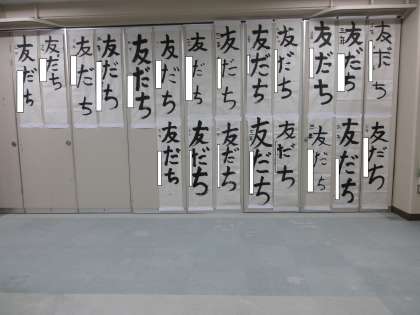 友だち
友だち
友だち
友だち
友だち
友だち
友だち
友だち
友だち
友だち
友だち
友だち
友だち
友だち
友だち
友だち
友だち
友だち
友だち
友だち
友だち